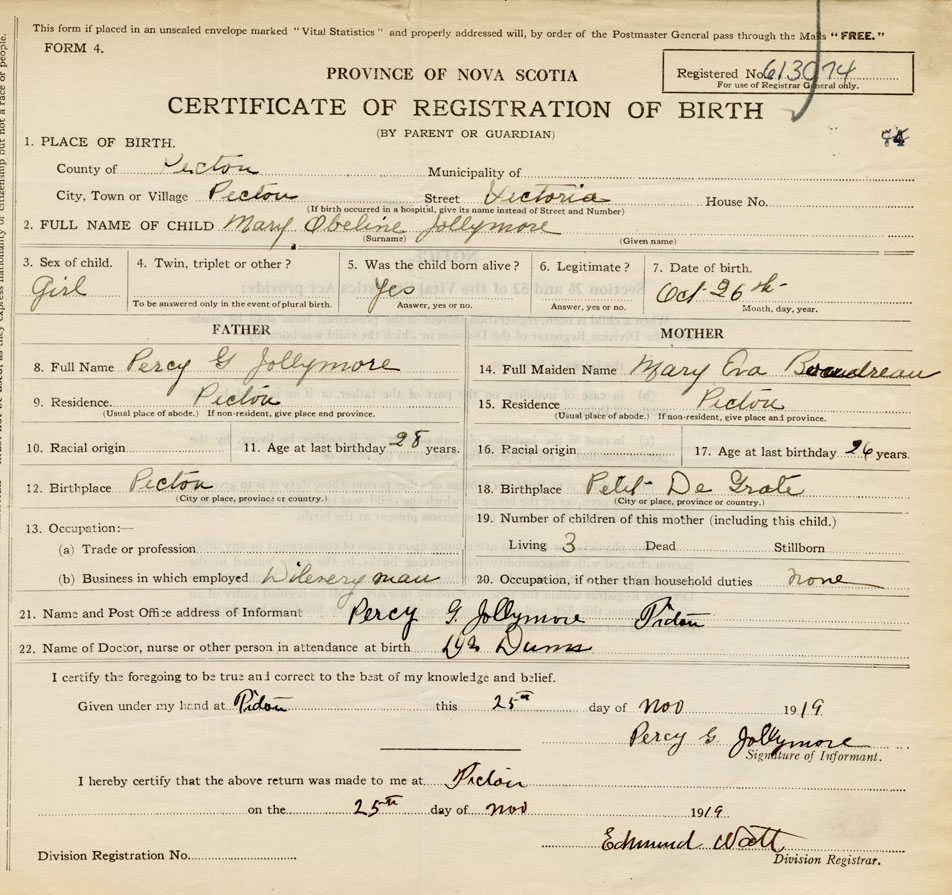 This form if placed in an unsealed envelope marked "Vital Statistics" and properly addressed will, by order of the Postmaster General pass through the Mails "FREE."
FORM 4.
PROVINCE OF NOVA SCOTIA
Registered No. 613074
For use of Registrar General only.
CERTIFICATE OF REGISTRATION OF BIRTH
(BY PARENT OR GUARDIAN)
1. PLACE OF BIRTH.
County of Pictou Municipality of
City, Town or Village Pictou Street Victoria House No.
(If birth occurred in a hospital, give its name instead of Street and Number)
2. FULL NAME OF CHILD Mary Obeline Jollymore
(Surname) (Given name)
3. Sex of child. 4. Twin, triplet or other? 5. Was the child born alive? 6. Legitimate? 7. Date of birth.
Girl Yes Oct 26th
To be answered only in the event of plural birth. Answer, yes or no. Answer, yes or no. Month, day, year.
FATHER MOTHER
8. Full Name Percy G Jollymore 14. Full Maiden Name Mary Eva Boudreau
9. Residence. Pictou 15. Residence Pictou
(Usual place of abode.) If non-resident, give place and province. (Usual place of abode.) If non-resident, give place and province.
10. Racial origin 11. Age at last birthday 28 years. 16. Racial origin 17. Age at last birthday. 26 years.
12. Birthplace Pictou 18. Birthplace Petit De Grate
(City or place, province or country.) (City or place, province or country.)
13. Occupation:— 19. Number of children of this mother (including this child.)
(a) Trade or profession Living 3 Dead Stillborn
(b) Business in which employed man 20. Occupation, if other than household duties none
21. Name and Post Office address of Informant Percy G. Jollymore Pictou
22. Name of Doctor, nurse or other person in attendance at birth
I certify the foregoing to be true and correct to the best of my knowledge and belief.
Given under my hand at Pictou this 25th day of Nov 1919
Percy G. Jollymore
Signature of Informant.
I hereby certify that the above return was made to me at Pictou
on the 25th day of Nov 1919
Edmund Watt
Division Registration No. Division Registrar.